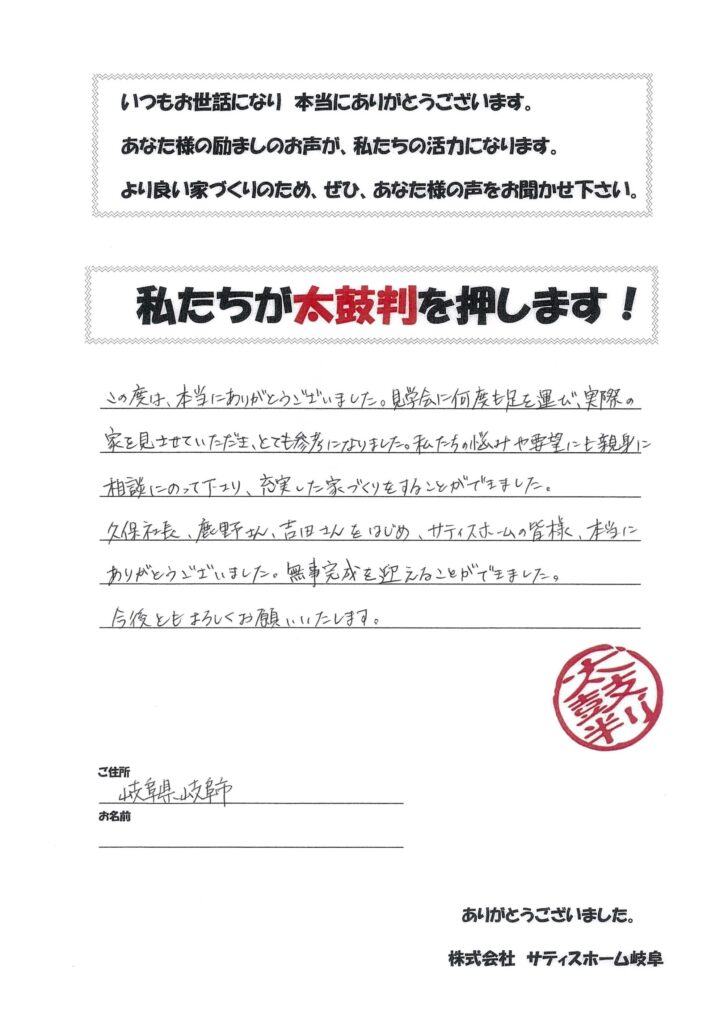 いつもお世話になり 本当にありがとうございます。
あなた様の励ましのお声が、私たちの活力になります。
より良い家づくりのため、ぜひ、あなた様の声をお聞かせ下さい。
私たちが太鼓判を押します！
この度は、本当にありがとうございました。見学会に何度も足を運び、実際の
家を見させていただき、とても参考になりました。私たちの悩みや要望にも親身に
相談にのって下さり、充実した家づくりをすることができました。
久保社長、鹿野さん、吉田さんをはじめ、サティスホームの皆様、本当に
ありがとうございました。無事完成を迎えることができました。
今後ともよろしくお願いいたします。
太鼓判
ご住所
岐阜県岐阜市
お名前
ありがとうございました。
株式会社 サティスホーム岐阜